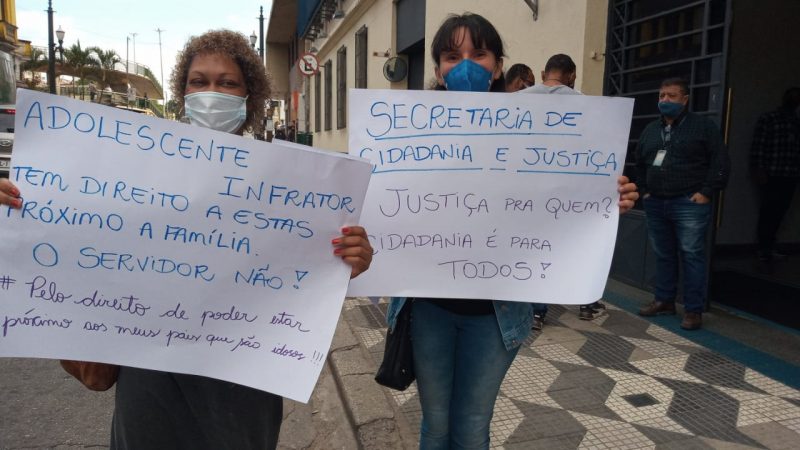 ADOLESCENTE
INFRATOR
TEM DIREITO A ESTAS
PRÓXIMO A FAMÍLIA.
O SERVIDOR NÃO!
# Pelo direito de poder estar
próximo aos meus pais que são idosos!!!
SECRETARIA DE
CIDADANIA E JUSTIÇA
JUSTIÇA PRA QUEM?
CIDADANIA É PARA
TODOS!